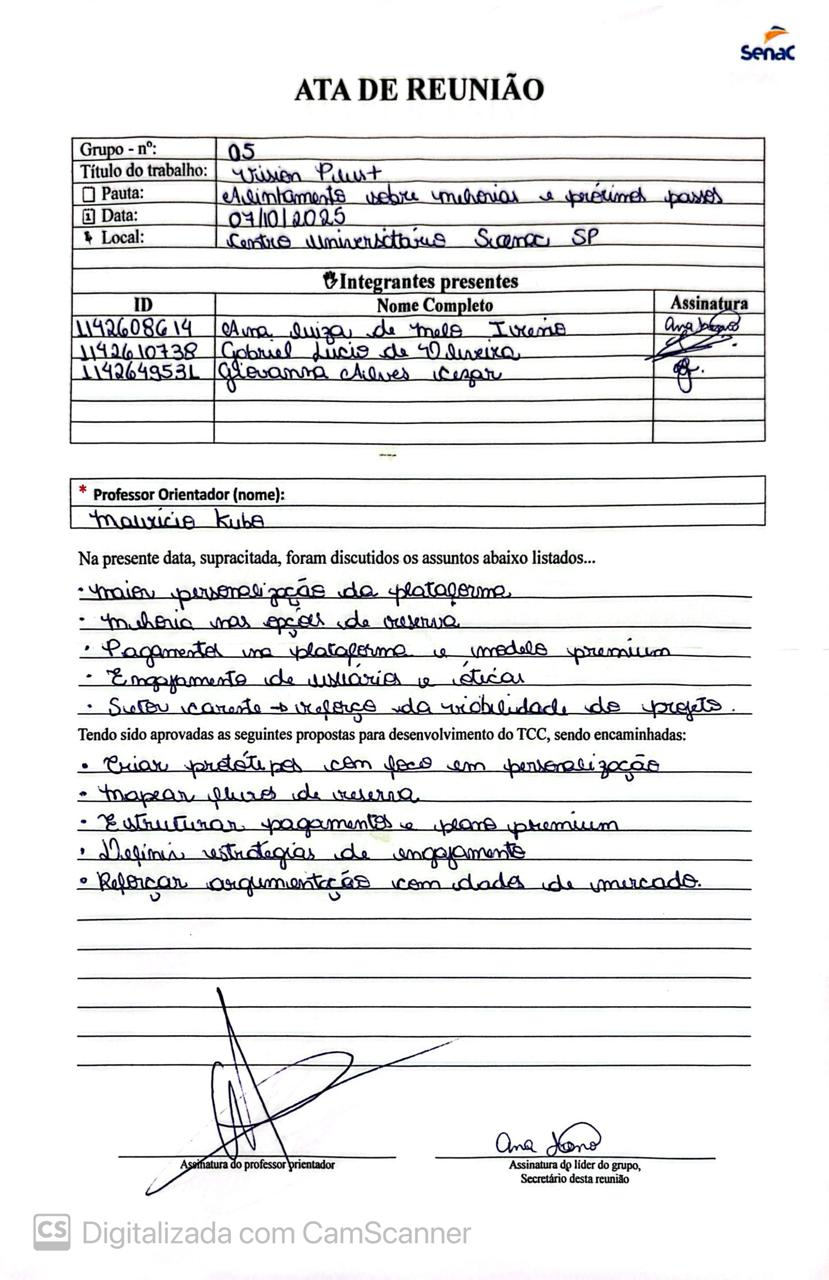 Senac
ATA DE REUNIÃO
Grupo - nº: 05
Título do trabalho: Vision
Pauta: Alinhamento sobre melhorias e próximos passos
Data: 07/10/2025
Local: Centro Universitário Senac SP
Integrantes presentes
ID Nome Completo Assinatura
1142608614 Ana Luiza de Melo Irenio
1142610738 Gabriel Lúcio de Oliveira
1142649531 Giovanna Alves Cezar
* Professor Orientador (nome):
Maurício Kubo
Na presente data, supracitada, foram discutidos os assuntos abaixo listados...
· Maior personalização da plataforma
· Melhoria nas opções de reserva
· Pagamentos na plataforma e modelo premium
· Engajamento de usuários e óticas
· Setor carente → reforço da viabilidade do projeto.
Tendo sido aprovadas as seguintes propostas para desenvolvimento do TCC, sendo encaminhadas:
• Criar protótipos com foco em personalização
• Mapear fluxos de reserva
• Estruturar pagamentos e plano premium
• Definir estratégias de engajamento
• Reforçar argumentação com dados de mercado.
Assinatura do professor orientador
Assinatura do líder do grupo,
Secretário desta reunião
CS Digitalizada com CamScanner